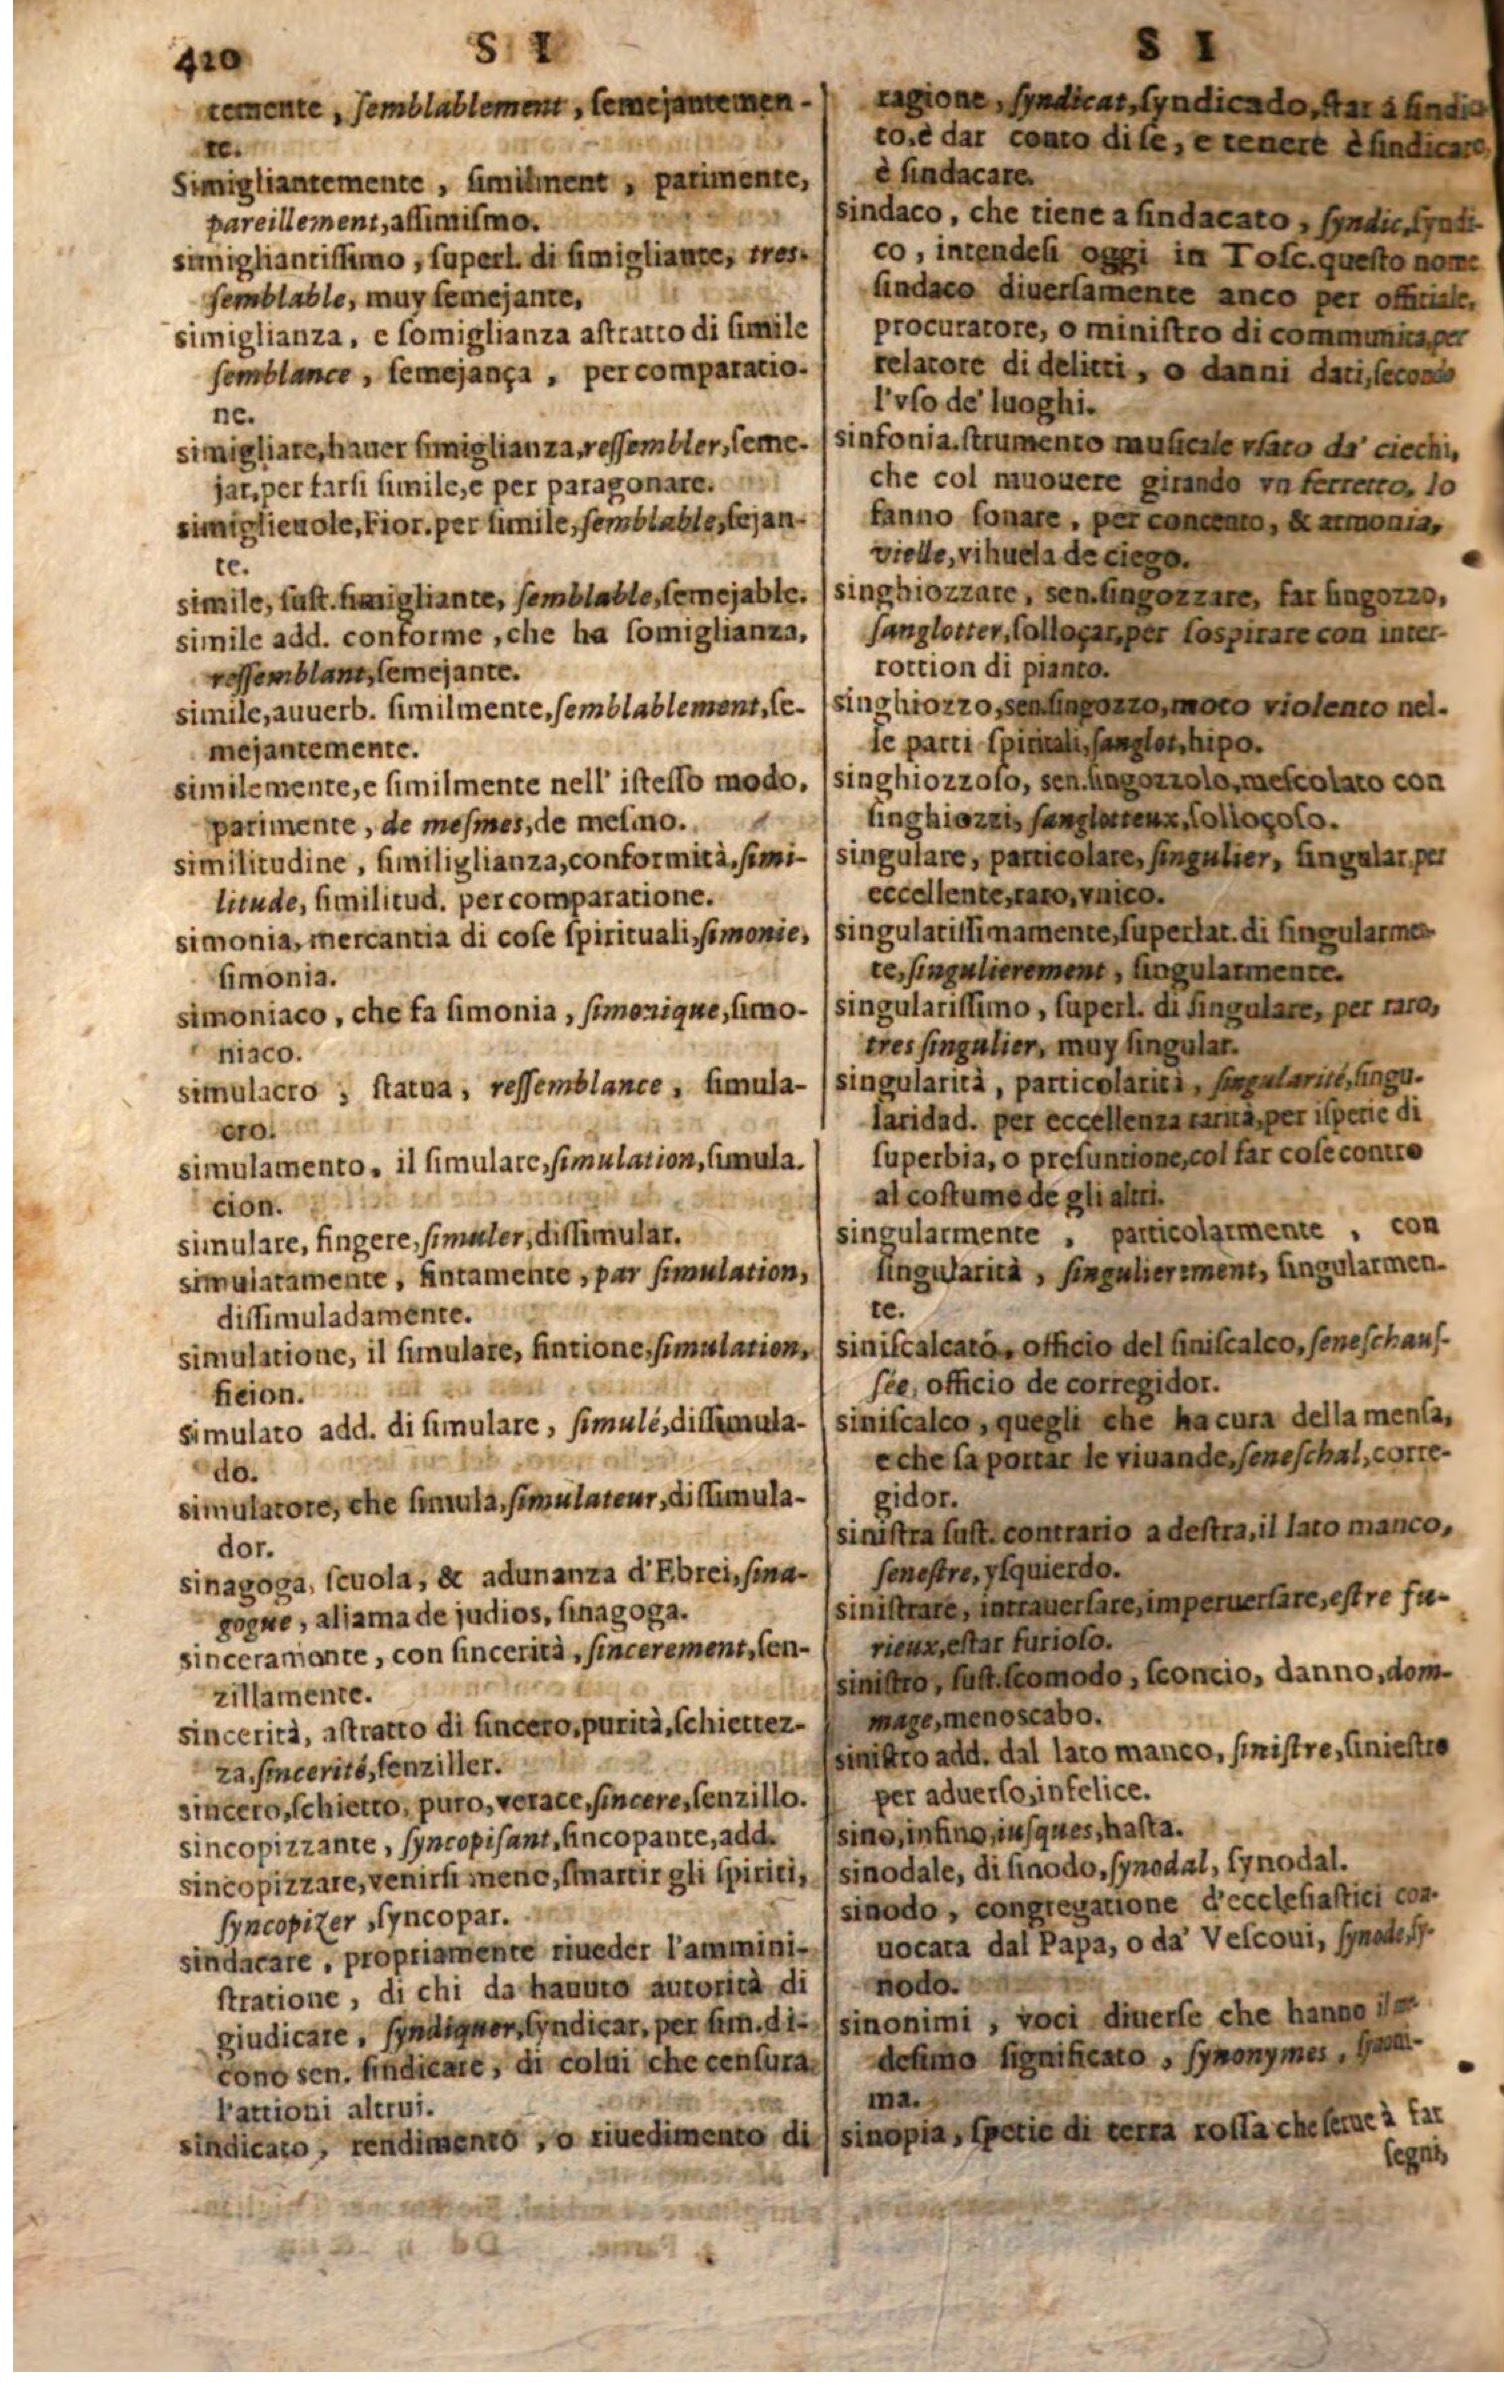 420 S I S I
temente, ſemblablement, ſemejantemen-
te.
Simigliantemente, ſimilment, parimente,
pareillement, aſſimiſmo.
simigliantiſſimo, ſuperl. di ſimigliante, tres-
ſemblable, muy ſemejante,
simiglianza, e ſomiglianza aſtratto di ſimile
ſemblance, ſemejança, per comparatio-
ne.
simigliare, hauer ſimiglianza, reſſembler, ſeme-
jar, per farſi ſimile, e per paragonare.
simiglieuole, Fior. per ſimile, ſemblable, ſejan-
te.
simile, ſuſt. ſimigliante, ſemblable, ſemejable.
simile add. conforme, che ha ſomiglianza,
reſſemblant, ſemejante.
simile, auuerb. ſimilmente, ſemblablement, ſe-
mejantemente.
similemente, e ſimilmente nell' iſteſſo modo,
parimente, de meſmes, de meſmo.
similitudine, ſimiliglianza, conformità, ſimi-
litude, ſimilitud. per comparatione.
simonia, mercantia di coſe ſpirituali, ſimonie,
ſimonia.
simoniaco, che fa ſimonia, ſimonique, ſimo-
niaco.
simulacro, ſtatua, reſſemblance, ſimula-
cro.
simulamento, il ſimulare, ſimulation, ſimula-
cion.
simulare, fingere, ſimuler, diſſimular.
simulatamente, fintamente, par ſimulation,
diſſimuladamente.
simulatione, il ſimulare, fintione, ſimulation,
ficion.
simulato add. di ſimulare, ſimulé, diſſimula-
do.
simulatore, che ſimula, ſimulateur, diſſimula-
dor.
sinagoga, ſcuola, & adunanza d'Ebrei, ſina-
gogue, aljama de judios, ſinagoga.
sinceramente, con ſincerità, ſincerement, ſen-
zillamente.
sincerità, aſtratto di ſincero, purità, ſchiettez-
za, ſincerité, ſenziller.
sincero, ſchietto, puro, verace, ſincere, ſenzillo.
sincopizzante, ſyncopiſant, ſincopante, add.
sincopizzare, venirſi meno, ſmartir gli ſpiriti,
ſyncopizer, ſyncopar.
sindacare, propriamente riueder l'ammini-
ſtratione, di chi da hauuto autorità di
giudicare, ſyndiquer, ſyndicar, per ſim. di-
cono sen. ſindicare, di colui che cenſura
l'attioni altrui.
sindicato, rendimento, o riuedimento di
ragione, ſyndicat, ſyndicado, ſtar á ſindica-
to. è dar conto di ſe, e tenere è ſindicare,
è ſindacare.
sindaco, che tiene a ſindacato, ſyndic, ſyndi-
co, intendeſi oggi in Toſc. queſto nome
ſindaco diuerſamente anco per officiale,
procuratore, o miniſtro di communita, per
relatore di delitti, o danni dati, ſecondo
l'vſo de' luoghi.
sinfonia. ſtrumento muſicale vſato da' ciechi,
che col muouere girando vn ferretto, lo
fanno ſonare, per concento, & armonia,
vielle, vihuela de ciego.
singhiozzare, sen. ſingozzare, far ſingozzo,
ſanglotter, ſolloçar, per ſoſpirare con inter-
rottion di pianto.
singhiozzo, sen. ſingozzo, moto violento nel-
le parti ſpiritali, ſanglot, hipo.
singhiozzoſo, sen. ſingozzoſo, meſcolato con
ſinghiozzi, ſanglotteux, ſolloçoſo.
singulare, particolare, ſingulier, ſingular. per
eccellente, raro, vnico.
singulariſſimamente, ſuperlat. di ſingularmen-
te, ſingulierement, ſingularmente.
singulariſſimo, ſuperl. di ſingulare, per raro,
tres ſingulier, muy ſingular.
singularità, particolarità, ſingularité, ſingu-
laridad. per eccellenza rarità, per iſpetie di
ſuperbia, o preſuntione, col far coſe contro
al coſtume de gli altri.
singularmente, particolarmente, con
ſingularità, ſingulierement, ſingularmen-
te.
siniſcalcato, officio del ſiniſcalco, ſeneſchauſ-
ſée, officio de corregidor.
siniſcalco, quegli che ha cura della menſa,
e che fa portar le viuande, ſeneſchal, corre-
gidor.
siniſtra ſuſt. contrario a deſtra, il lato manco,
ſeneſtre, yſquierdo.
siniſtrare, intrauerſare, imperuerſare, eſtre fu-
rieux, eſtar furioſo.
siniſtro, ſuſt. ſcomodo, ſconcio, danno, dom-
mage, menoscabo.
siniſtro add. dal lato manco, ſiniſtre, ſinieſtro
per aduerſo, infelice.
sino, infino, iuſques, haſta.
sinodale, di ſinodo, ſynodal, ſynodal.
sinodo, congregatione d'eccleſiaſtici con-
uocata dal Papa, o da' Veſcoui, ſynode, ſy-
nodo.
sinonimi, voci diuerſe che hanno il me-
deſimo ſignificato, ſynonymes, ſynoni-
ma.
sinopia, ſpetie di terra roſſa che ſerue à far
ſegni,